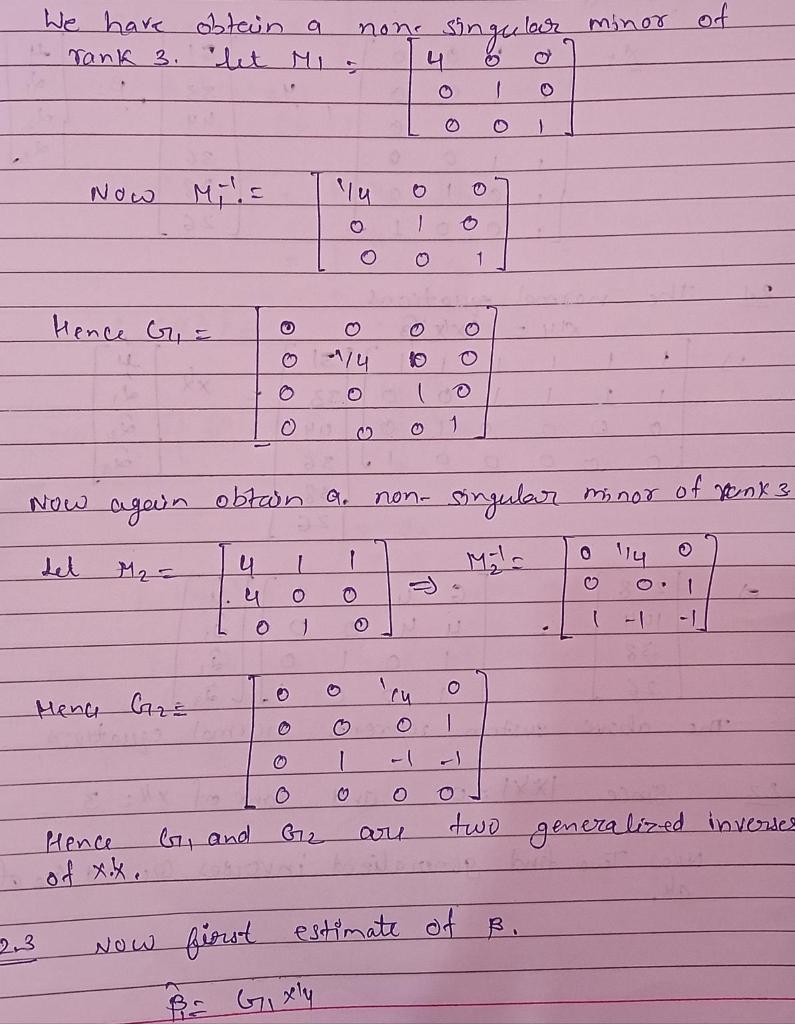 We have obtain a non- singular minor of
rank 3. let M1 = [4 0 0
0 1 0
0 0 1]
Now M1^-1 = [1/4 0 0
0 1 0
0 0 1]
Hence G1 = [0 0 0 0
0 1/4 0 0
0 0 1 0
0 0 0 1]
Now again obtain a non- singular minor of rank 3
Let M2 = [4 1 1 ⇒ M2^-1 = [0 1/4 0
4 0 0 0 0 1
0 1 0] 1 -1 -1]
Hence G2 = [0 0 1/4 0
0 0 0 1
0 1 -1 -1
0 0 0 0]
Hence G1 and G2 are two generalized inverses
of x'x.
2.3 Now first estimate of β.
β̂1 = G1 x'y